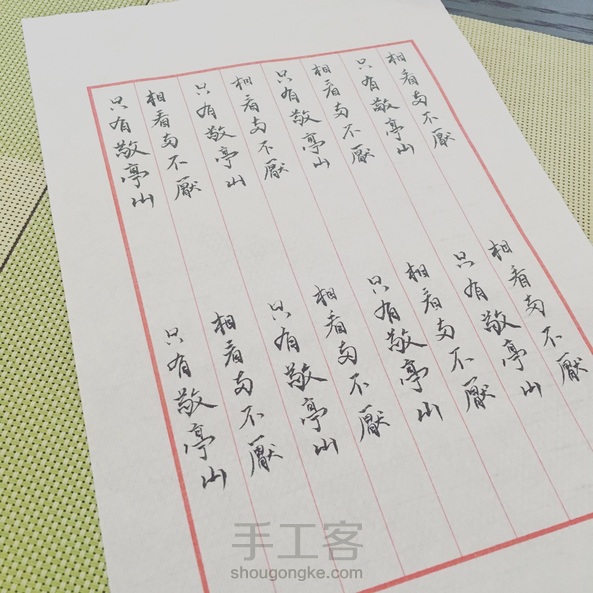 相看两不厭
只有敬亭山
相看两不厭
只有敬亭山
相看两不厭
只有敬亭山
相看两不厭
只有敬亭山
相看两不厭
只有敬亭山
相看两不厭
只有敬亭山
相看两不厭
只有敬亭山
相看两不厭
只有敬亭山
手工客
shougongke.com